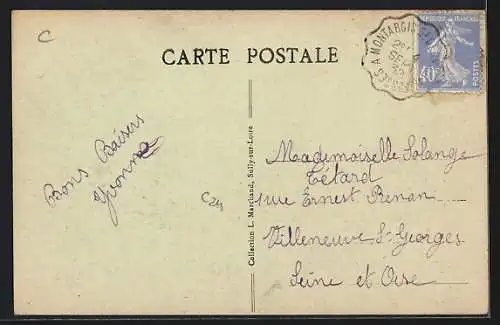 C
CARTE POSTALE
A MONTARGIS
REPUBLIQUE FRANÇAISE
40c
POSTES
Bons Baisers
Yvonne
C24
Collection L. Marchand, Sully-sur-Loire
Maademoiselle Solange
Tétard
1 rue Ernest Renan
Villeneuve St-Georges
Seine et Oise